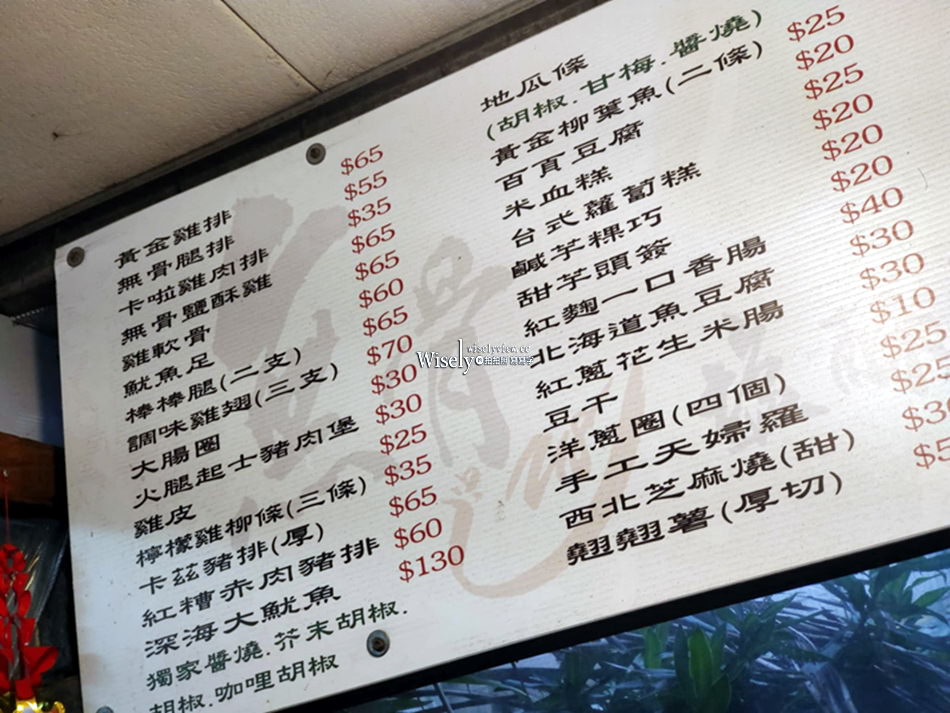 黃金雞排 $65
無骨腿排 $55
卡啦雞肉排 $35
無骨鹽酥雞 $65
雞軟骨 $65
魷魚足 $60
棒棒腿(二支) $65
調味雞翅(三支) $70
大腸圈 $30
火腿起士豬肉堡 $30
雞皮 $25
檸檬雞柳條(三條) $35
卡茲豬排(厚) $65
紅糟赤肉豬排 $60
深海大魷魚 $130
獨家醬燒.芥末胡椒.
胡椒.咖哩胡椒
地瓜條
(胡椒.甘梅.醬燒)
黃金柳葉魚(二條) $25
百頁豆腐 $20
米血糕 $25
台式蘿蔔糕 $20
鹹芋粿巧 $20
甜芋頭簽 $20
紅麴一口香腸 $40
北海道魚豆腐 $30
紅蔥花生米腸 $30
豆干 $10
洋蔥圈(四個) $25
手工天婦羅 $25
西北芝麻燒(甜) $30
翹翹薯(厚切)
wiselyview.cc
Wisely